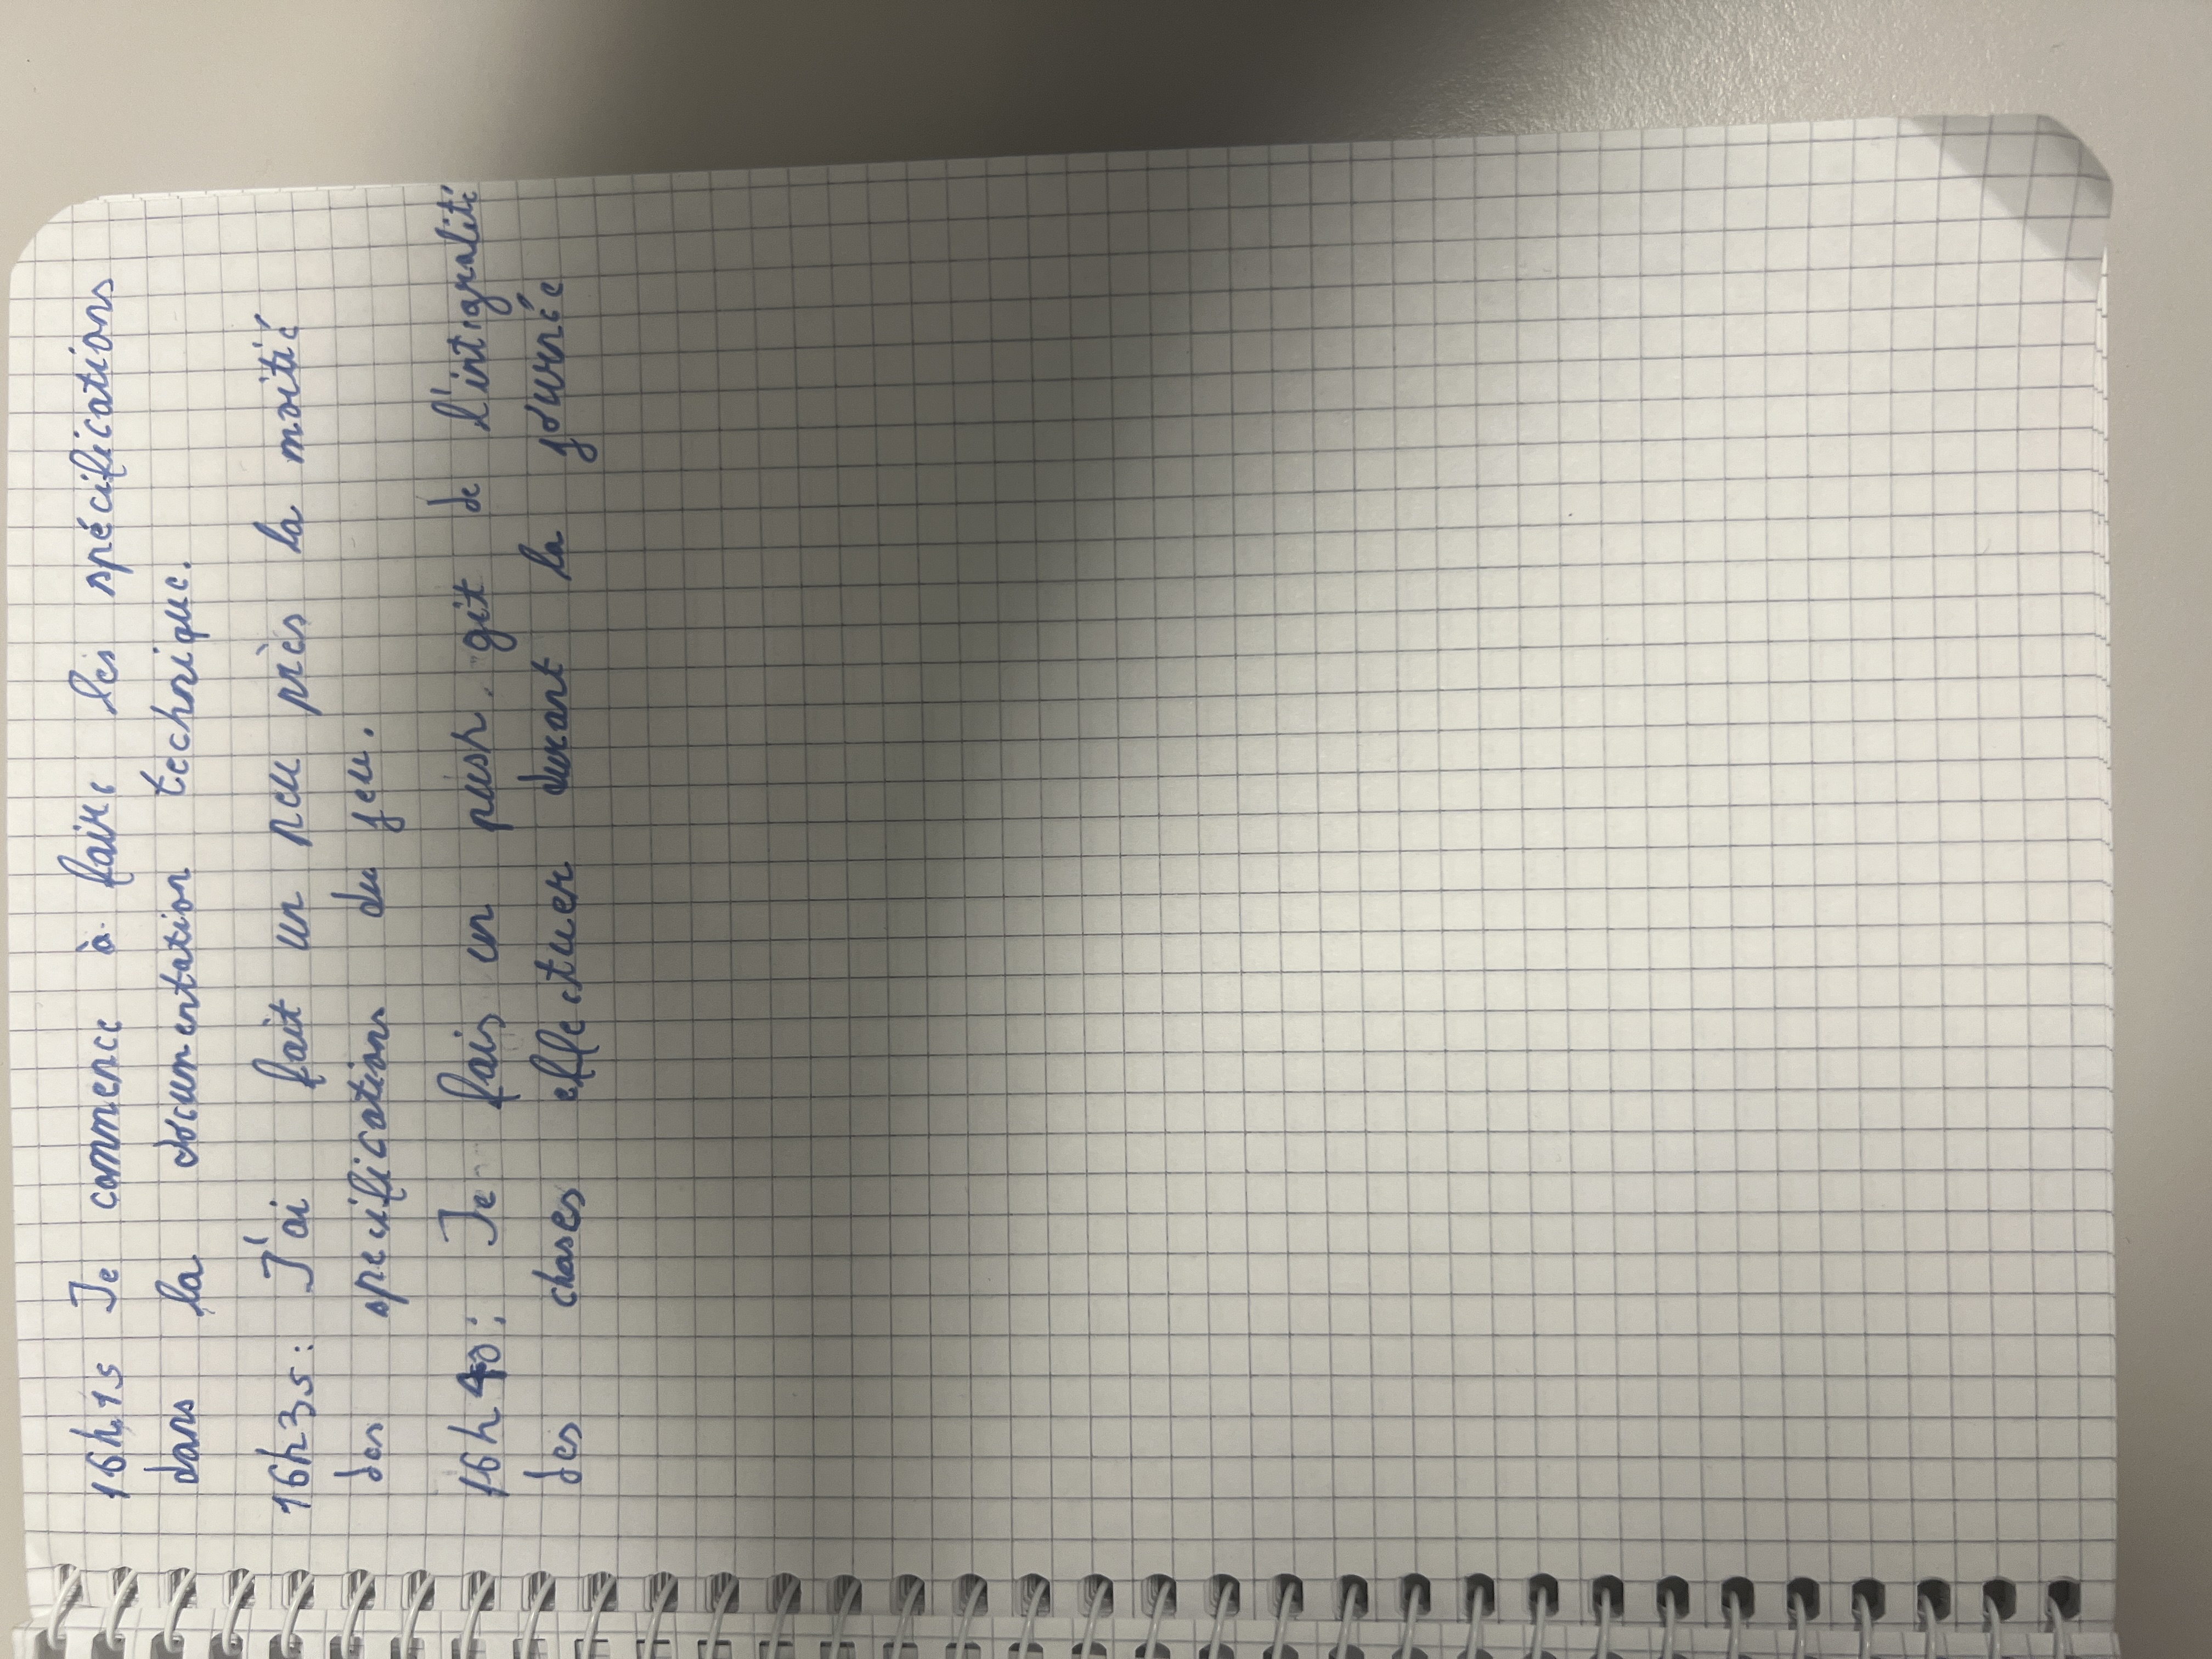 16h15 Je commence à faire les spécifications
dans la documentation technique.
16h35: J'ai fait un peu près la moitié
des specifications du jeu.
16h40: Je fais un push git de l'intégralité
des choses effectuer durant la journée